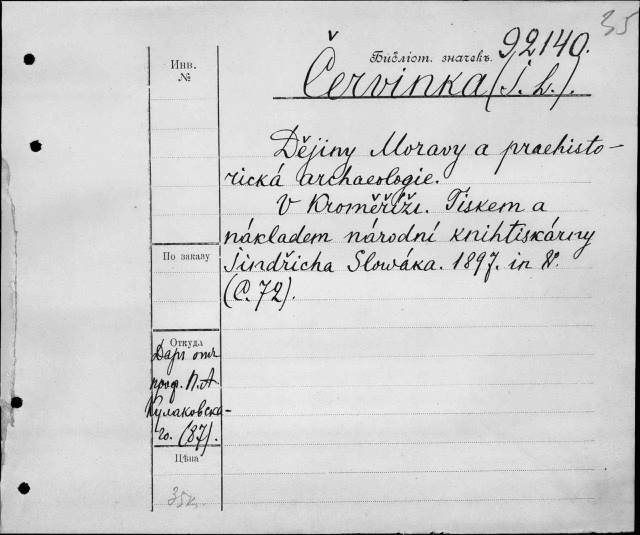 35
Инв.
№
Библіот. значекъ. 92140.
Červinka (I. L.).
Dějiny Moravy a praehisto-
rická archaeologie.
V Kroměříži. Tiskem a
nákladem národní knihtiskárny
Jindřicha Slováka. 1897. in 8º.
(C. 72).
По заказу
Откуда
Даръ отъ
проф. П. А.
Кулаковска-
го. (87).
Цѣна
35к.